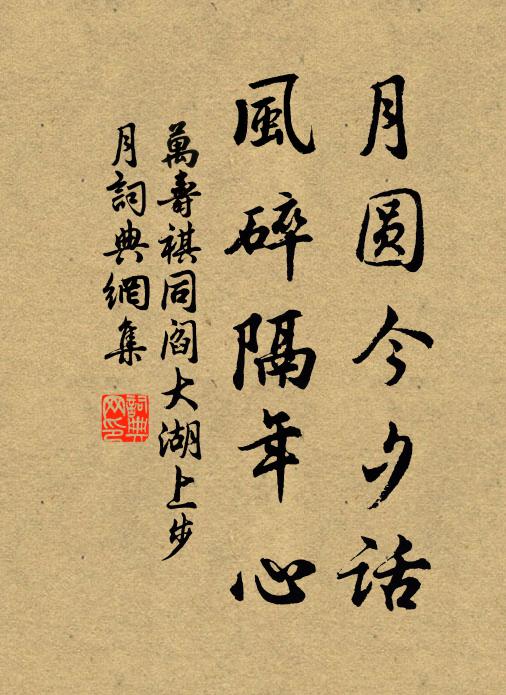 月圆今夕話
風碎隔年心
萬壽祺同閻大湖上步
月詞典網集
詞典
网印